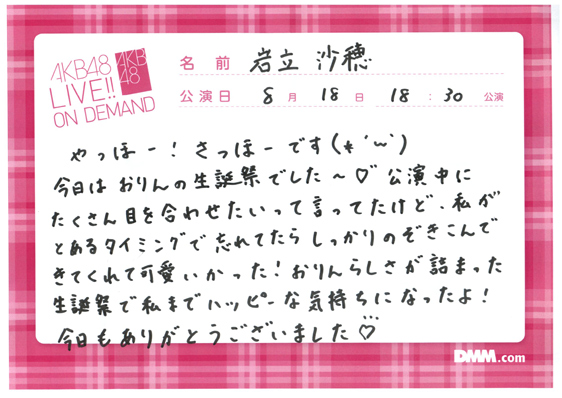 AKB48
LIVE!!
ON DEMAND
AKB
48
名前 岩立 沙穂
公演日 8月 18日 18:30 公演
やっほー!さっほーです(*´`)
今日はおりんの生誕祭でした〜♡公演中に
たくさん目を合わせたいって言ってたけど、私が
とあるタイミングで忘れてたらしっかりのぞきこんで
きてくれて可愛いかった!おりんらしさが詰まった
生誕祭で私までハッピーな気持ちになったよ!
今日もありがとうございました♡
DMM.com